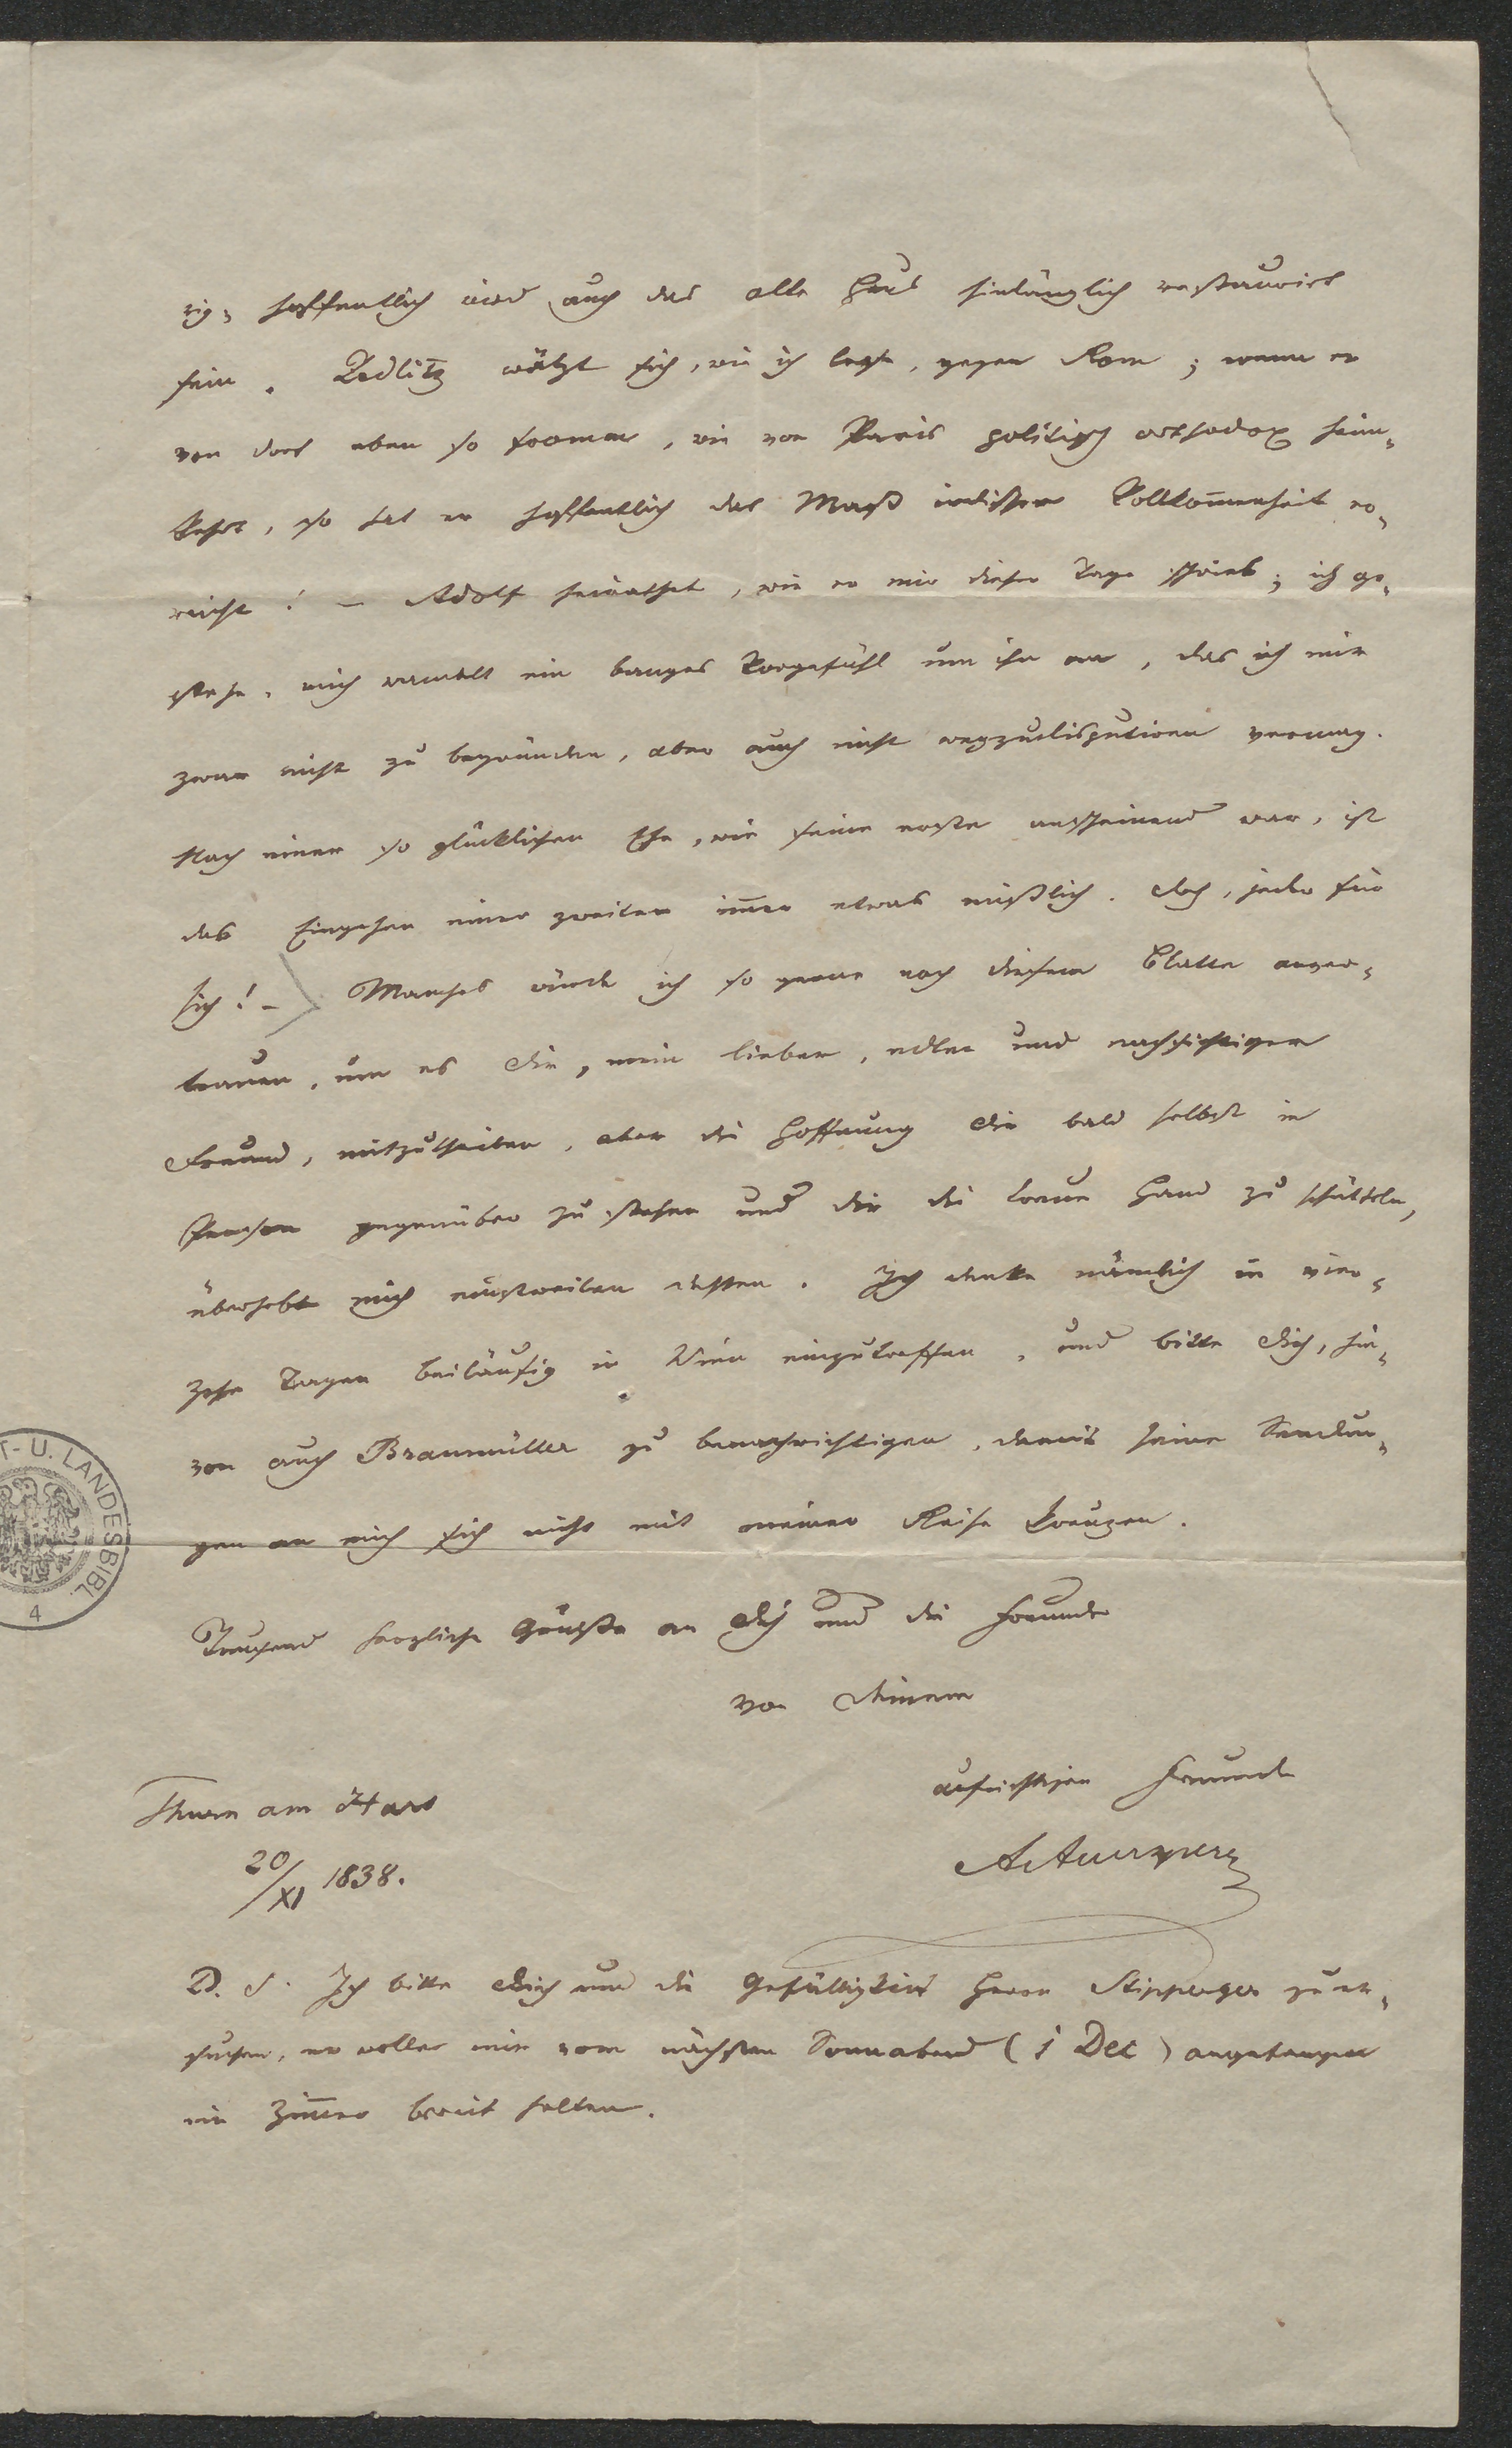 rig, hoffentlich wird auch das alte Haus hinlänglich restaurirt
sein. Zedlitz wälzt sich, wie ich lese, gegen Rom; wenn er
von dort eben so fromm, wie von Paris politisch orthodox heim-
kehrt, so hat er hoffentlich das Maß irdischer Vollkom̄enheit er-
reicht! – Adolf heirathet, wie er mir dieser Tage schrieb; ich ge-
stehe, mich wandelt ein banges Vorgefühl um ihn an, das ich mir
zwar nicht zu begründen, aber auch nicht wegzudisputiren vermag.
Nach einer so glücklichen Ehe, wie seine erste anscheinend war, ist
das Eingehen einer zweiten im̄er etwas mißlich. Doch, jeder für
sich! – Manches würde ich so gerne noch diesem Blatte anver-
trauen, um es Dir, mein lieber, edler und nachsichtiger
Freund, mitzutheilen, aber die Hoffnung Dir bald selbst in
Person gegenüber zu stehen und Dir die treue Hand zu schütteln,
überhebt mich einstweilen dessen. Ich denke nämlich in vier-
zehn Tagen beiläufig in Wien einzutreffen, und bitte Dich, hie-
von auch Braumüller zu benachrichtigen, damit seine Sendun-
gen an mich sich nicht mit meiner Reise kreuzen.
Tausend herzliche Grüße an Dich und die Freunde
von Deinem
aufrichtigen Freunde
AAuersperg
Thurn am Hart
20/XI 1838.
P. S. Ich bitte Dich um die Gefälligkeit Herrn Stipperger zu er-
suchen, er wolle mir vom nächsten Sonnabend (1 Dec) angefangen
ein Zim̄er bereit halten.
T.- U. LANDESBIBL.
4